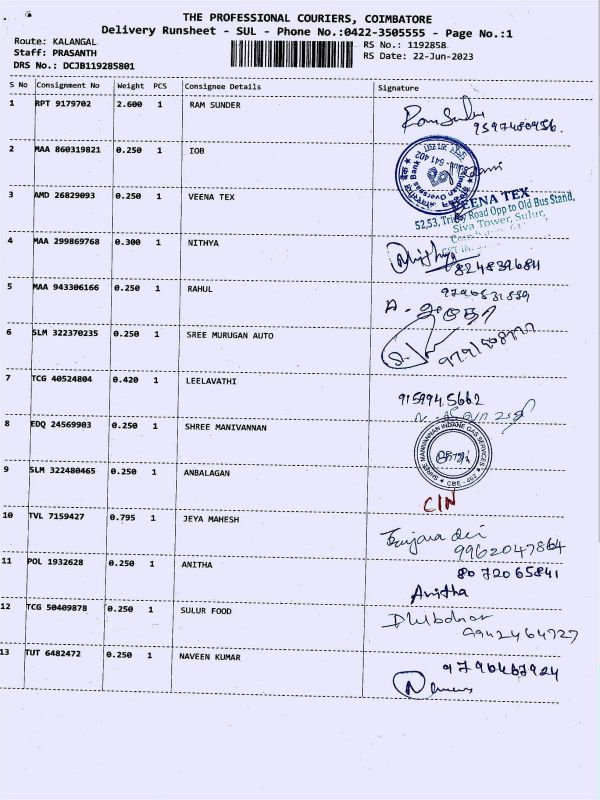 THE PROFESSIONAL COURIERS, COIMBATORE
Delivery Runsheet - SUL - Phone No.:0422-3505555 - Page No.:1
Route: KALANGAL
RS No.: 1192858
Staff: PRASANTH
RS Date: 22-Jun-2023
DRS No.: DCJB119285801
S No Consignment No Weight PCS Consignee Details Signature
1 RPT 9179702 2.600 1 RAM SUNDER
Ram Sunder
9597480956.
2 MAA 860319821 0.250 1 IOB
Indian Overseas Bank
641 402
3 AMD 26829093 0.250 1 VEENA TEX
VEENA TEX
52,53, Trichy Road Opp to Old Bus Stand,
Siva Tower, Sulur,
4 MAA 299869768 0.300 1 NITHYA
Nithya
5 MAA 943306166 0.250 1 RAHUL
6 SLM 322370235 0.250 1 SREE MURUGAN AUTO
7 TCG 40524804 0.420 1 LEELAVATHI
9159945662
8 EDQ 24569903 0.250 1 SHREE MANIVANNAN
SHREE MANIVANNAN INDANE GAS SERVICES
9 SLM 322480465 0.250 1 ANBALAGAN
CIN
10 TVL 7159427 0.795 1 JEYA MAHESH
9962047864
11 POL 1932628 0.250 1 ANITHA
8072065841
Anitha
12 TCG 50409878 0.250 1 SULUR FOOD
9942464727
13 TUT 6482472 0.250 1 NAVEEN KUMAR
9796467924